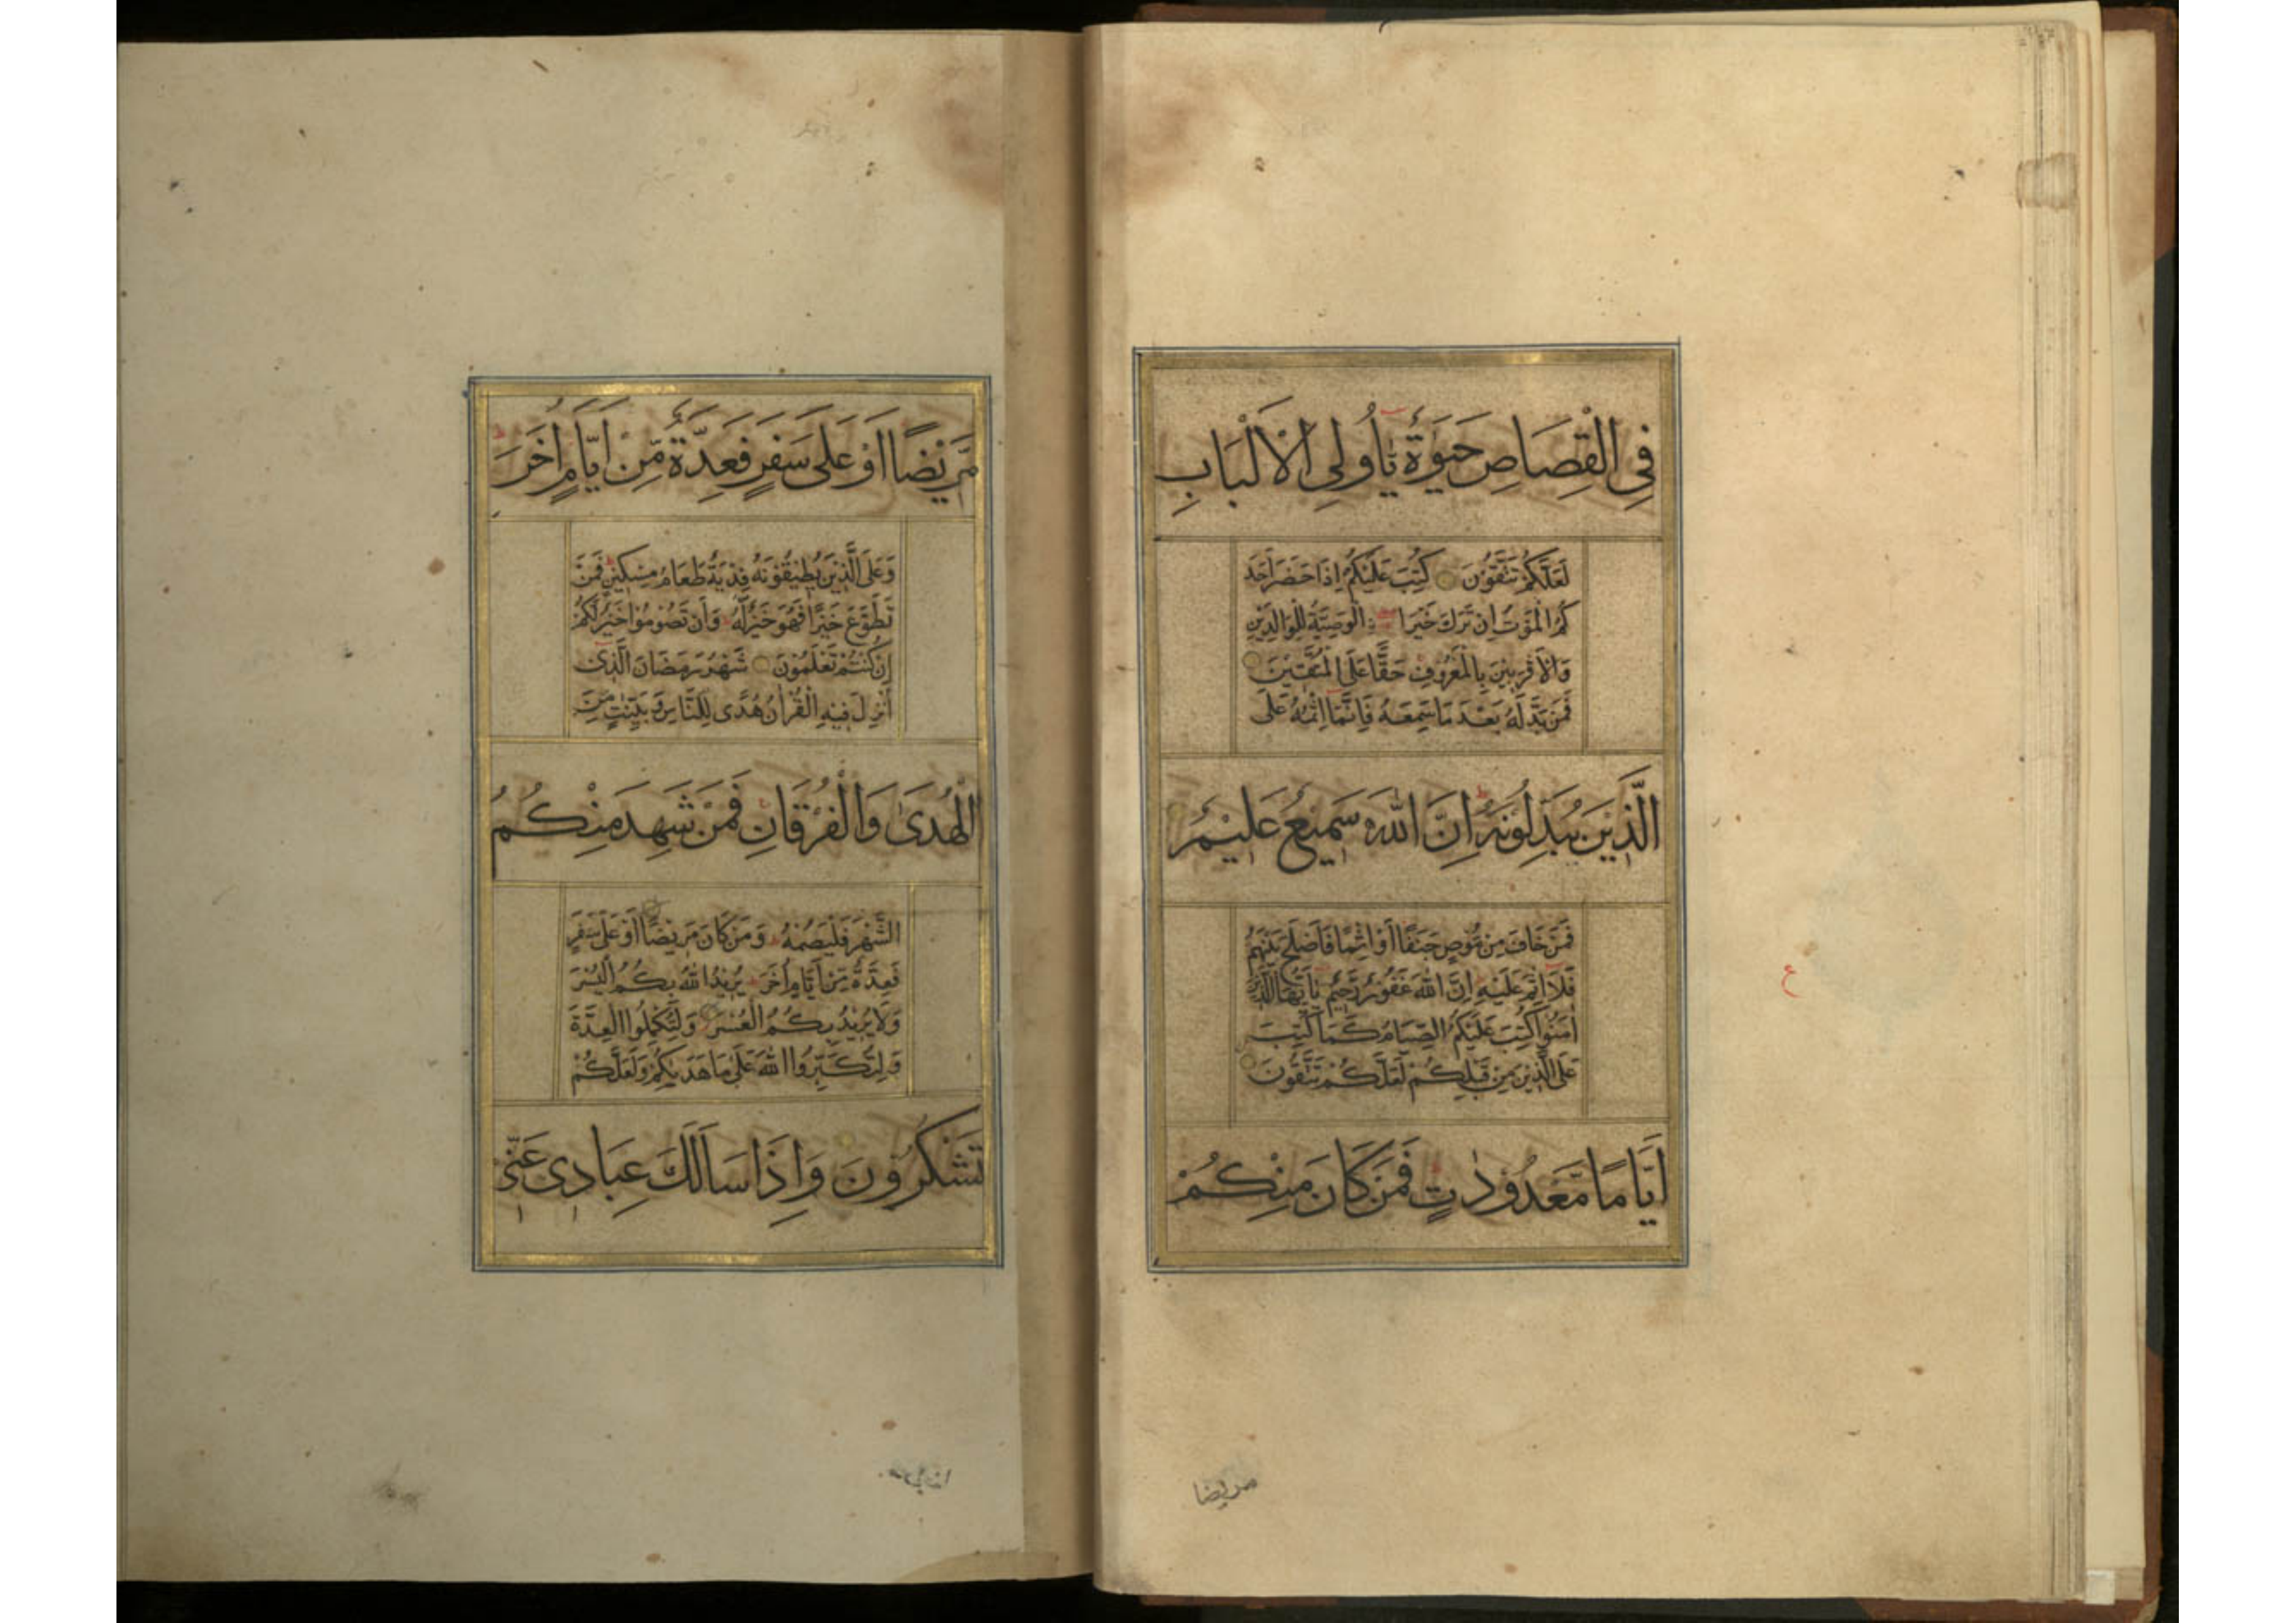 فِي الْقِصَاصِ حَيٰوةٌ يٰٓاُولِي الْاَلْبَابِ
لَعَلَّكُمْ تَتَّقُوْنَ كُتِبَ عَلَيْكُمْ اِذَا حَضَرَ اَحَدَ
كُمُ الْمَوْتُ اِنْ تَرَكَ خَيْرًا الْوَصِيَّةُ لِلْوَالِدَيْنِ
وَالْاَقْرَبِيْنَ بِالْمَعْرُوْفِ حَقًّا عَلَى الْمُتَّقِيْنَ
فَمَنْ بَدَّلَهُ بَعْدَ مَا سَمِعَهُ فَاِنَّمَا اِثْمُهُ عَلَى
الَّذِيْنَ يُبَدِّلُوْنَهُ اِنَّ اللّٰهَ سَمِيْعٌ عَلِيْمٌ
فَمَنْ خَافَ مِنْ مُوْصٍ جَنَفًا اَوْ اِثْمًا فَاَصْلَحَ بَيْنَهُمْ
فَلَا اِثْمَ عَلَيْهِ اِنَّ اللّٰهَ غَفُوْرٌ رَّحِيْمٌ يٰٓاَيُّهَا الَّذِيْنَ
اٰمَنُوْا كُتِبَ عَلَيْكُمُ الصِّيَامُ كَمَا كُتِبَ
عَلَى الَّذِيْنَ مِنْ قَبْلِكُمْ لَعَلَّكُمْ تَتَّقُوْنَ
اَيَّامًا مَّعْدُوْدٰتٍ فَمَنْ كَانَ مِنْكُمْ
ع
مريضا
مَّرِيْضًا اَوْ عَلٰى سَفَرٍ فَعِدَّةٌ مِّنْ اَيَّامٍ اُخَرَ
وَعَلَى الَّذِيْنَ يُطِيْقُوْنَهُ فِدْيَةٌ طَعَامُ مِسْكِيْنٍ فَمَنْ
تَطَوَّعَ خَيْرًا فَهُوَ خَيْرٌ لَّهُ وَاَنْ تَصُوْمُوْا خَيْرٌ لَّكُمْ
اِنْ كُنْتُمْ تَعْلَمُوْنَ شَهْرُ رَمَضَانَ الَّذِيْ
اُنْزِلَ فِيْهِ الْقُرْاٰنُ هُدًى لِّلنَّاسِ وَبَيِّنٰتٍ مِّنَ
الْهُدٰى وَالْفُرْقَانِ فَمَنْ شَهِدَ مِنْكُمُ
الشَّهْرَ فَلْيَصُمْهُ وَمَنْ كَانَ مَرِيْضًا اَوْ عَلٰى سَفَرٍ
فَعِدَّةٌ مِّنْ اَيَّامٍ اُخَرَ يُرِيْدُ اللّٰهُ بِكُمُ الْيُسْرَ
وَلَا يُرِيْدُ بِكُمُ الْعُسْرَ وَلِتُكْمِلُوا الْعِدَّةَ
وَلِتُكَبِّرُوا اللّٰهَ عَلٰى مَا هَدٰيكُمْ وَلَعَلَّكُمْ
تَشْكُرُوْنَ وَاِذَا سَاَلَكَ عِبَادِيْ عَنِّيْ